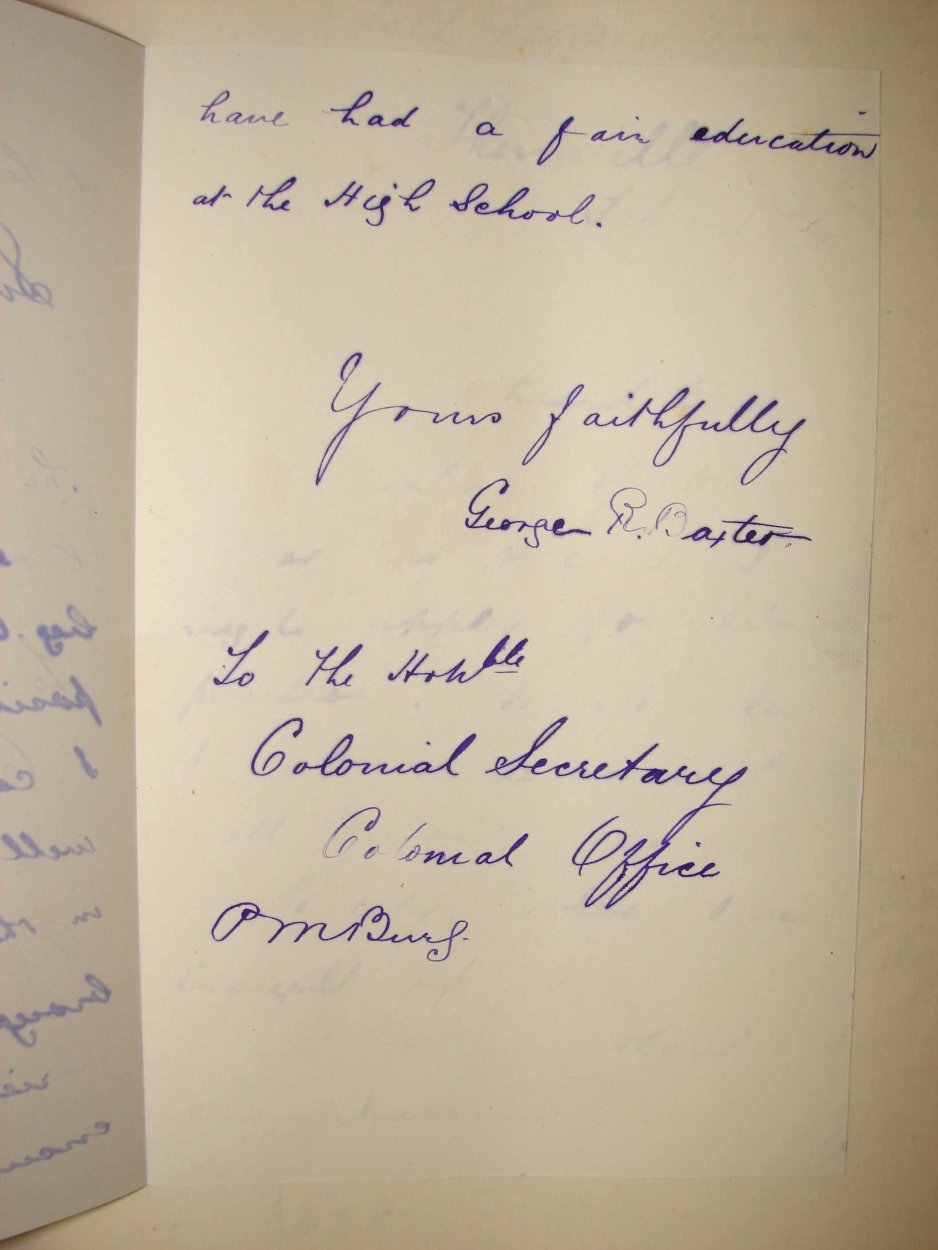 have had a fair education
at the High School.
Yours faithfully
George R. Baxter
To the Honble
Colonial Secretary
Colonial Office
PMBurg.